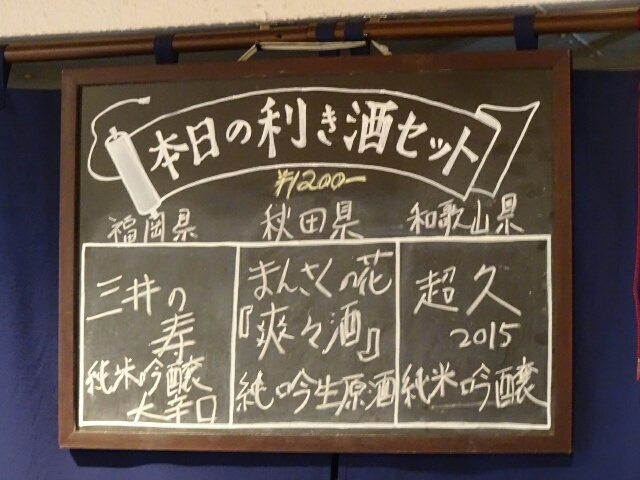 本日の利き酒セット
¥1200ー
福岡県
三井の
寿
純米吟醸
大辛口
秋田県
まんさくの花
『爽々酒』
純吟生原酒
和歌山県
超久
2015
純米吟醸